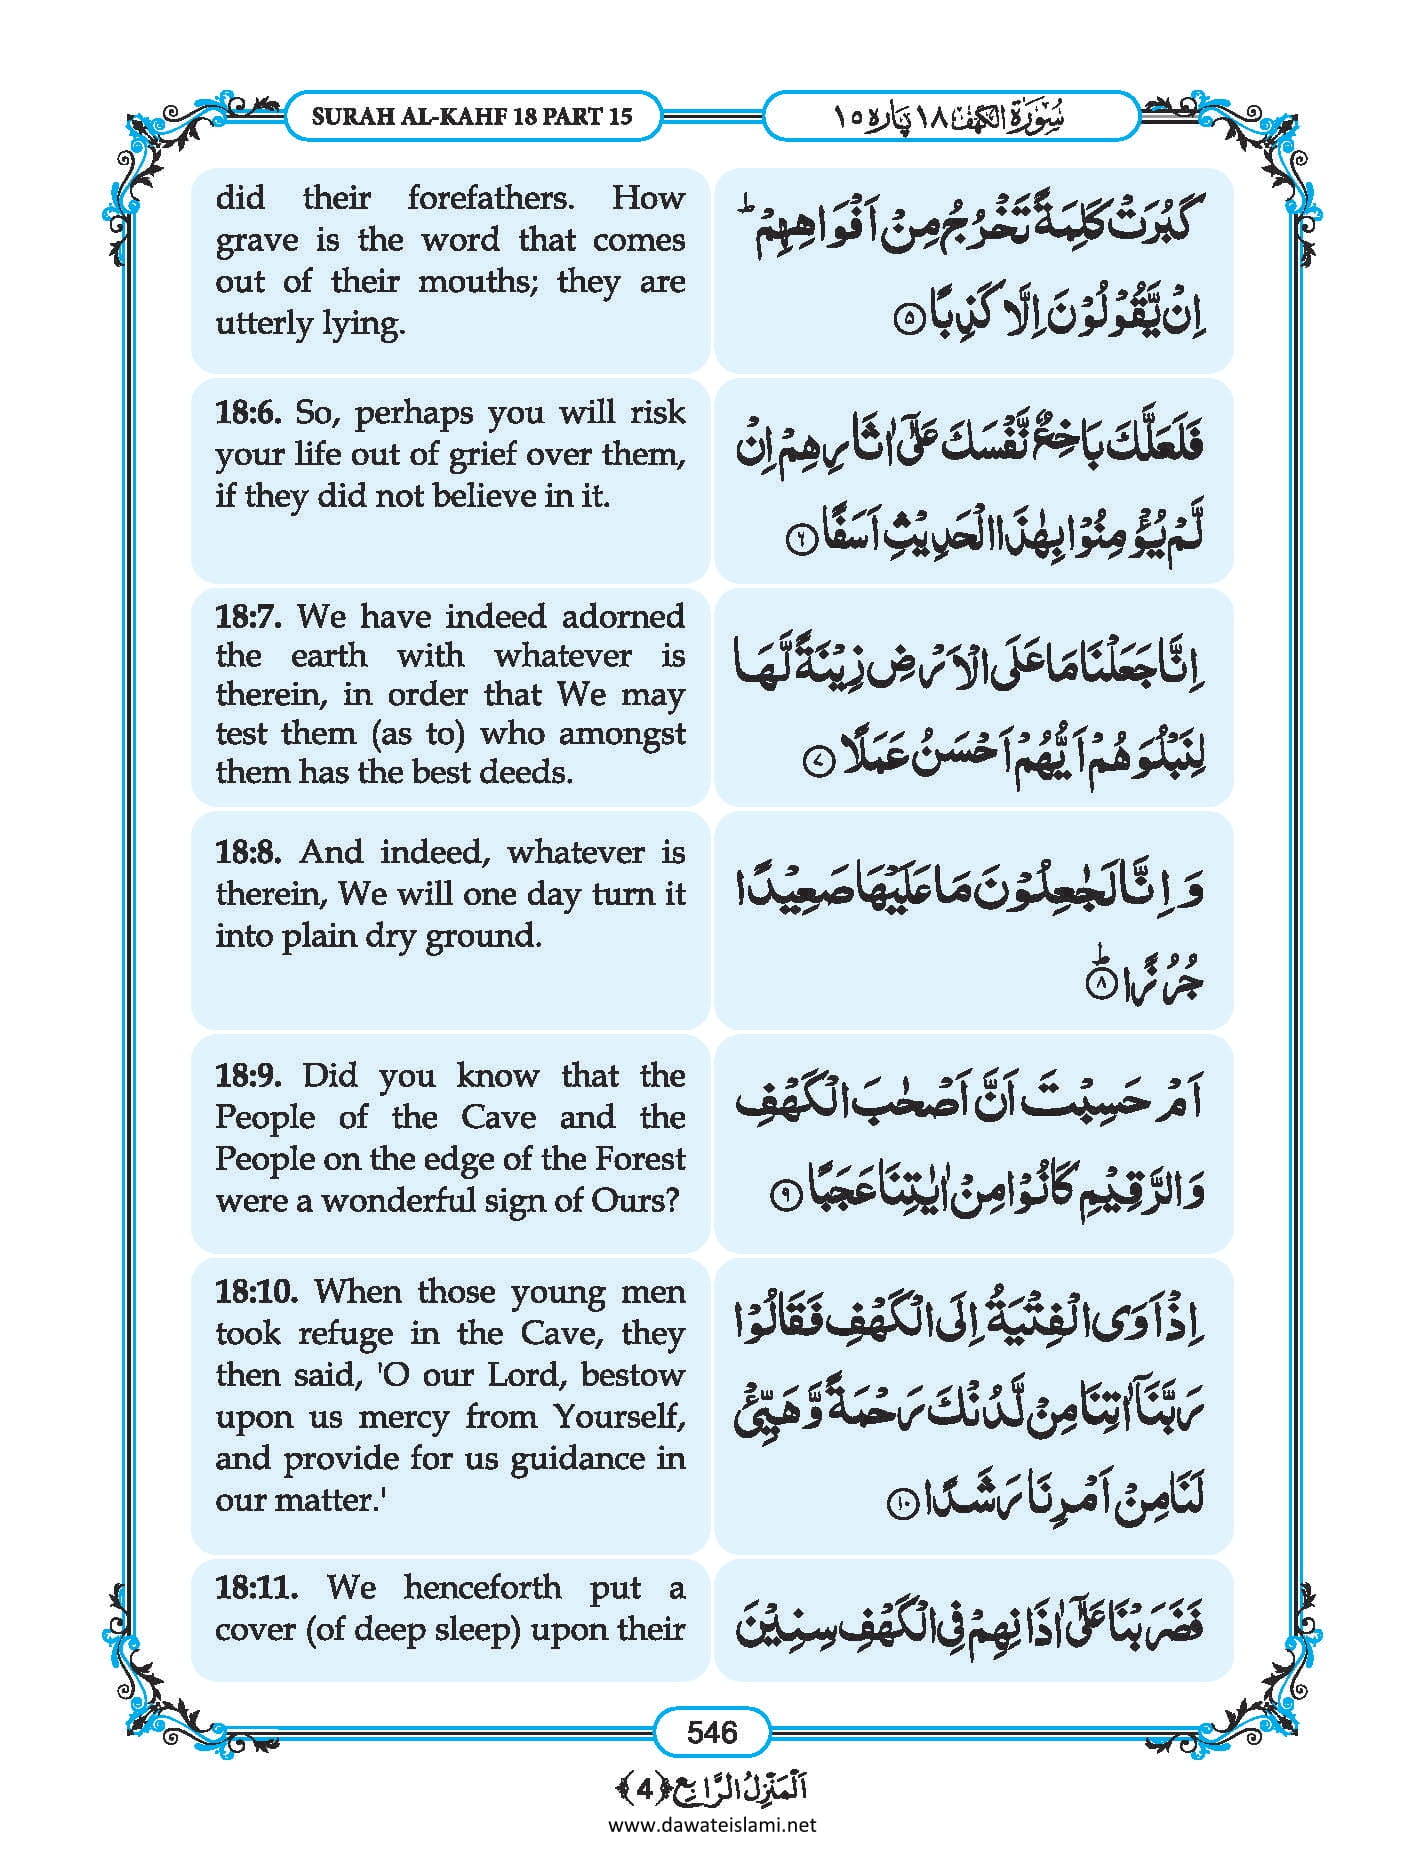 SURAH AL-KAHF 18 PART 15
سُوْرَۃُ الْكَهْف ١٨ پَاره ١٥
did their forefathers. How
grave is the word that comes
out of their mouths; they are
utterly lying.
كَبُرَتْ كَلِمَةً تَخْرُجُ مِنْ اَفْوَاهِهِمْ ؕ
اِنْ يَّقُوْلُوْنَ اِلَّا كَذِبًا ۵
18:6. So, perhaps you will risk
your life out of grief over them,
if they did not believe in it.
فَلَعَلَّكَ بَاخِعٌ نَّفْسَكَ عَلٰۤى اٰثَارِهِمْ اِنْ
لَّمْ يُؤْمِنُوْا بِهٰذَا الْحَدِيْثِ اَسَفًا ۶
18:7. We have indeed adorned
the earth with whatever is
therein, in order that We may
test them (as to) who amongst
them has the best deeds.
اِنَّا جَعَلْنَا مَا عَلَى الْاَرْضِ زِيْنَةً لَّهَا
لِنَبْلُوَهُمْ اَيُّهُمْ اَحْسَنُ عَمَلًا ۷
18:8. And indeed, whatever is
therein, We will one day turn it
into plain dry ground.
وَ اِنَّا لَجٰعِلُوْنَ مَا عَلَيْهَا صَعِيْدًا
جُرُزًا ؕ ۸
18:9. Did you know that the
People of the Cave and the
People on the edge of the Forest
were a wonderful sign of Ours?
اَمْ حَسِبْتَ اَنَّ اَصْحٰبَ الْكَهْفِ
وَ الرَّقِيْمِ كَانُوْا مِنْ اٰيٰتِنَا عَجَبًا ۹
18:10. When those young men
took refuge in the Cave, they
then said, 'O our Lord, bestow
upon us mercy from Yourself,
and provide for us guidance in
our matter.'
اِذْ اَوَى الْفِتْيَةُ اِلَى الْكَهْفِ فَقَالُوْا
رَبَّنَاۤ اٰتِنَا مِنْ لَّدُنْكَ رَحْمَةً وَّ هَيِّئْ
لَنَا مِنْ اَمْرِنَا رَشَدًا ۱۰
18:11. We henceforth put a
cover (of deep sleep) upon their
فَضَرَبْنَا عَلٰۤى اٰذَانِهِمْ فِى الْكَهْفِ سِنِيْنَ
546
اَلْمَنْزِلُ الرَّابِع ﴿4﴾
www.dawateislami.net